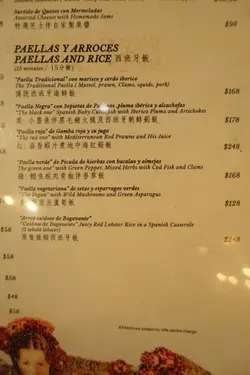 Surtido de Quesos con Mermeladas
Assorted Cheeses with Homemade Jams
特選芝士伴自家製果醬 $98
PAELLAS Y ARROCES
PAELLAS AND RICE 西班牙飯
(25 minutes / 25分鐘)
"Paella Tradicional" con marisco y cerdo iberico
The Traditional Paella ( Mussel, prawn, Clams, squids, pork)
傳統西班牙海鮮飯 $168
"Paella Negra" con Sepietas de Palamos, pluma ibérica y alcachofas
"The black one" Spanish Baby Cuttlefish with Iberico Pluma and Artichokes
$178
"Paella roja" de Gamba roja y su jugo
"The red one" with Mediterranean Red Prawns and His Juice
$248
"Paella verde" de Picada de hierbas con bacalao y almejas
The green one" with Green Pepper, Mixed Herbs with Cod Fish and Clams
$168
"Paella vegetariana" de setas y esparragos verdes
"The Vegan" with Wild Mushrooms and Green Asparagus
$128
"Arroz caldoso de Bogavante"
"Caldoso de Bogavante" Juicy Red Lobster Rice in a Spanish Casserole
(1 whole lobster)
$248
$58
$58
$58
$52
$58
All items are subject to 10% service charge